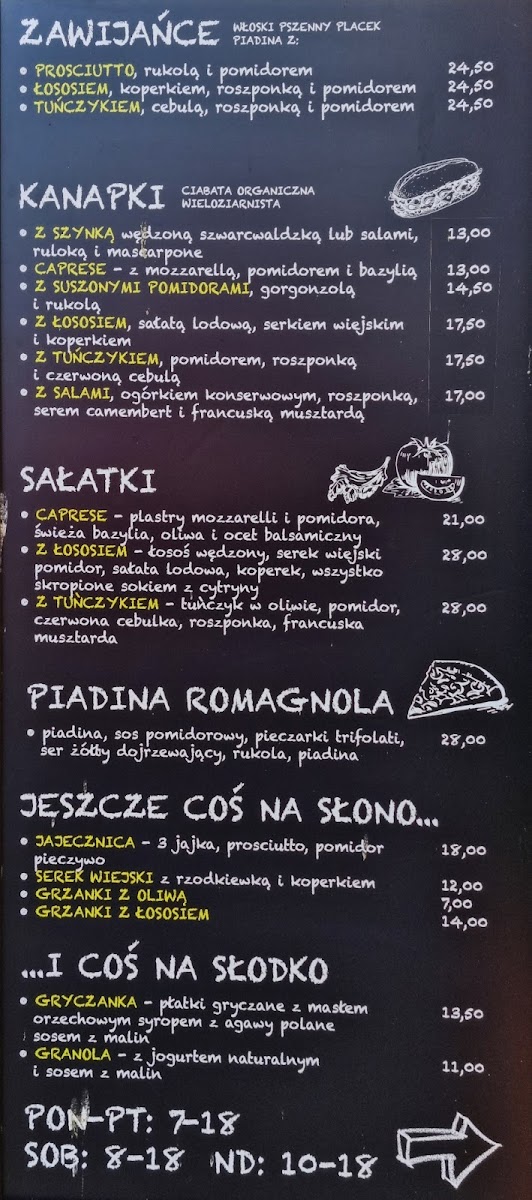 ZAWIJAŃCE WŁOSKI PSZENNY PLACEK
PIADINA Z:
• PROSCIUTTO, rukolą i pomidorem 24,50
• ŁOSOSIEM, koperkiem, roszponką i pomidorem 24,50
• TUŃCZYKIEM, cebulą, roszponką i pomidorem 24,50
KANAPKI CIABATA ORGANICZNA
WIELOZIARNISTA
• Z SZYNKĄ wędzoną szwarcwaldzką lub salami, 13,00
ruloką i mascarpone
• CAPRESE – z mozzarellą, pomidorem i bazylią 13,00
• Z SUSZONYMI POMIDORAMI, gorgonzolą 14,50
i rukolą
• Z ŁOSOSIEM, sałatą lodową, serkiem wiejskim 17,50
i koperkiem
• Z TUŃCZYKIEM, pomidorem, roszponką 17,50
i czerwoną cebulą
• Z SALAMI, ogórkiem konserwowym, roszponką, 17,00
serem camembert i francuską musztardą
SAŁATKI
• CAPRESE – plastry mozzarelli i pomidora, 21,00
świeża bazylia, oliwa i ocet balsamiczny
• Z ŁOSOSIEM – łosoś wędzony, serek wiejski 28,00
pomidor, sałata lodowa, koperek, wszystko
skropione sokiem z cytryny
• Z TUŃCZYKIEM – tuńczyk w oliwie, pomidor, 28,00
czerwona cebulka, roszponka, francuska
musztarda
PIADINA ROMAGNOLA
• piadina, sos pomidorowy, pieczarki trifolati, 28,00
ser żółty dojrzewający, rukola, piadina
JESZCZE COŚ NA SŁONO...
• JAJECZNICA – 3 jajka, prosciutto, pomidor 18,00
pieczywo
• SEREK WIEJSKI z rzodkiewką i koperkiem 12,00
• GRZANKI Z OLIWĄ 7,00
• GRZANKI Z ŁOSOSIEM 14,00
...I COŚ NA SŁODKO
• GRYCZANKA – płatki gryczane z masłem 13,50
orzechowym syropem z agawy polane
sosem z malin
• GRANOLA – z jogurtem naturalnym 11,00
i sosem z malin
PON-PT: 7-18
SOB: 8-18 ND: 10-18